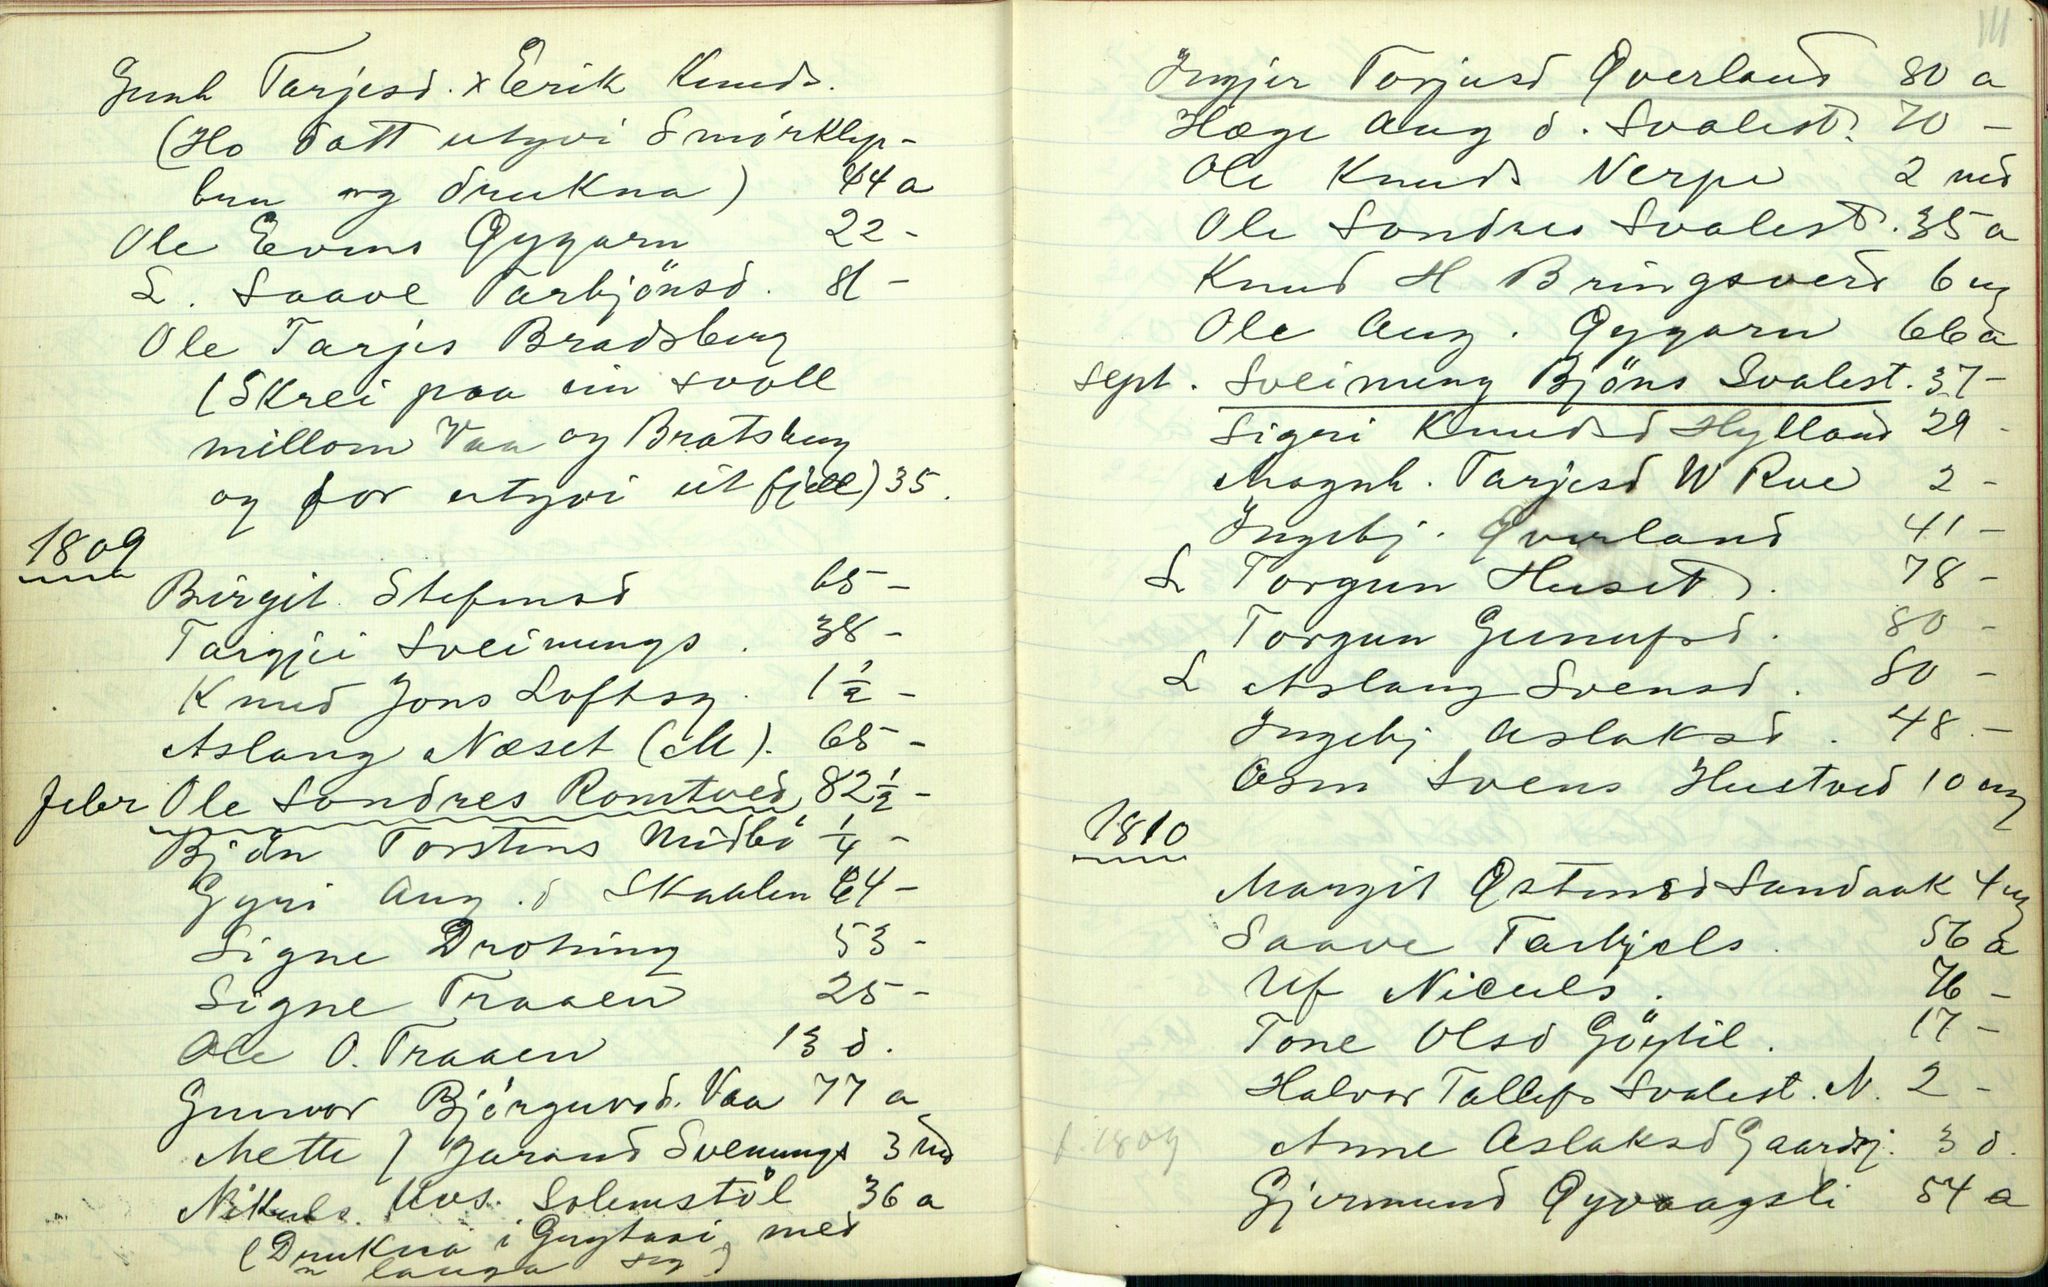 Gunh Tarjesd. x Erik Knuds.
(Ho datt utyvi Smörklep-
bru og drukna) 44 a
Ole Evens Øygarn 22 -
L. Saave Tarbjönsd. 81 -
Ole Tarjes Bradsberg
(Skrei paa ein svoll
millom Vaa og Bratsberg
og for utyvi eit fjell) 35.
1809
Birgit Stefensd 65 -
Targjei Sveinungs. 38 -
Knud Jons Loftsg. 1 1/2 -
Aslaug Næset (M). 65 -
febr Ole Sondres Romtved 82 1/2 -
Bjön Torstens Midbö 1/4 -
Gyri Aug. d Skaalen 64 -
Signe Drotning 53 -
Signe Traaen 25 -
Ole O. Traaen 13 d.
Gunvor Björguvsd. Vaa 77 a
Mette / Jarand Svenungs 3 md
Nikuls Uvs. Solemstöl 36 a
(Drukna i med
lauga seg)
111
Ingjer Torjusd Øverland 80 a
Hæge Aug d. Svalest. 70 -
Ole Knuds Nerpe 2 md
Ole Sondres Svalest. 35 a
Knud H Bringsverd 6 ug
Ole Aug. Øygarn 66 a
sept. Sveinung Bjöns Svalest. 37 -
Sigri Knudsd Hylland 29 -
Magnh. Tarjesd N Rue 2 -
Ingebj. Øverland 41 -
L Torgun Huset. 78 -
Torgun Gunufsd. 80 -
L Aslaug Svensd. 80 -
Ingebj Aslaksd. 48 -
Asm Svens Hustved 10 ug
1810
Margit Østensd Sandaak 4 ug
Saave Tarkjels. 56 a
Uf Niculs. 76 -
Tone Olsd Göytil. 17 -
Halvor Tallefs Svalest. N. 2 -
f. 1809 Anne Aslaksd Gaardsj. 3 d.
Gjermund Øyvaagsli 54 a